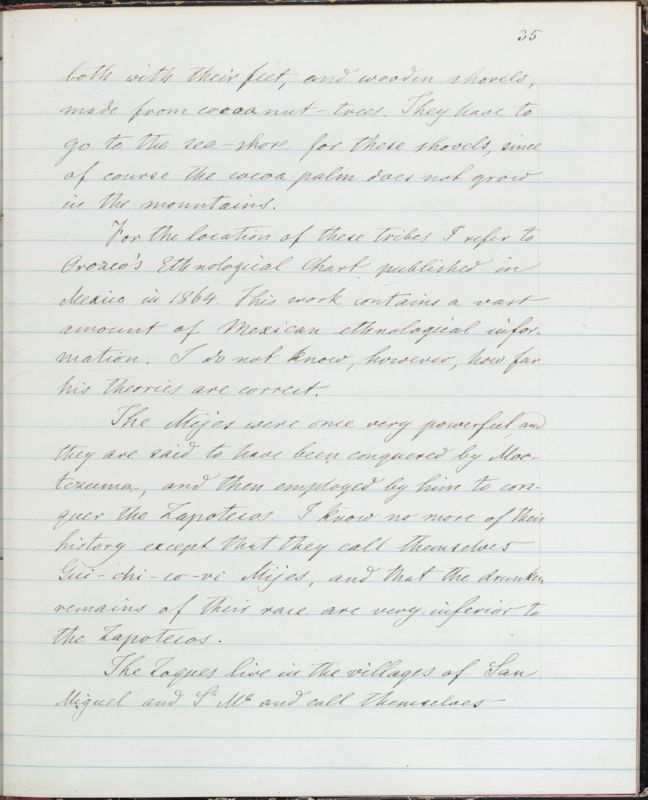 35
both with their feet, and wooden shovels,
made from cocoanut-trees. They have to
go to the sea-shore for these shovels, since
of course the cocoa palm does not grow
in the mountains.
For the location of these tribes I refer to
Orozco's Ethnological Chart published in
Mexico in 1864. This work contains a vast
amount of Mexican ethnological infor-
mation. I do not know, however, how far
his theories are correct.
The Mijes were once very powerful and
they are said to have been conquered by Moc-
tezuma, and then employed by him to con-
quer the Zapotecos. I know no more of their
history except that they call themselves
Gui-chi-co-vi Mijes, and that the drunken
remains of their race are very inferior to
the Zapotecos.
The Zoques live in the villages of San
Miguel and Sta Ma and call themselves